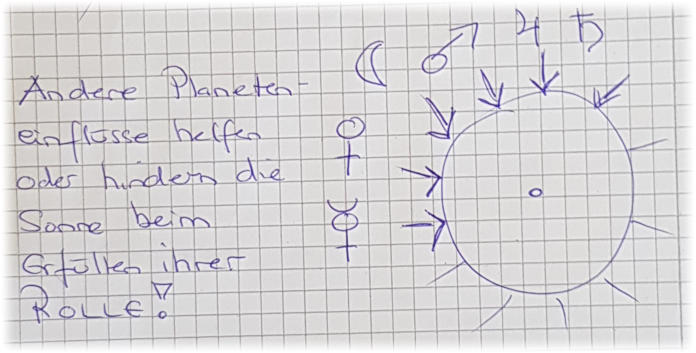 Andere Planeten-
einflüsse helfen
oder hindern die
Sonne beim
Erfüllen ihrer
ROLLE!
☾ ♂ ♃ ♄
♀
☿